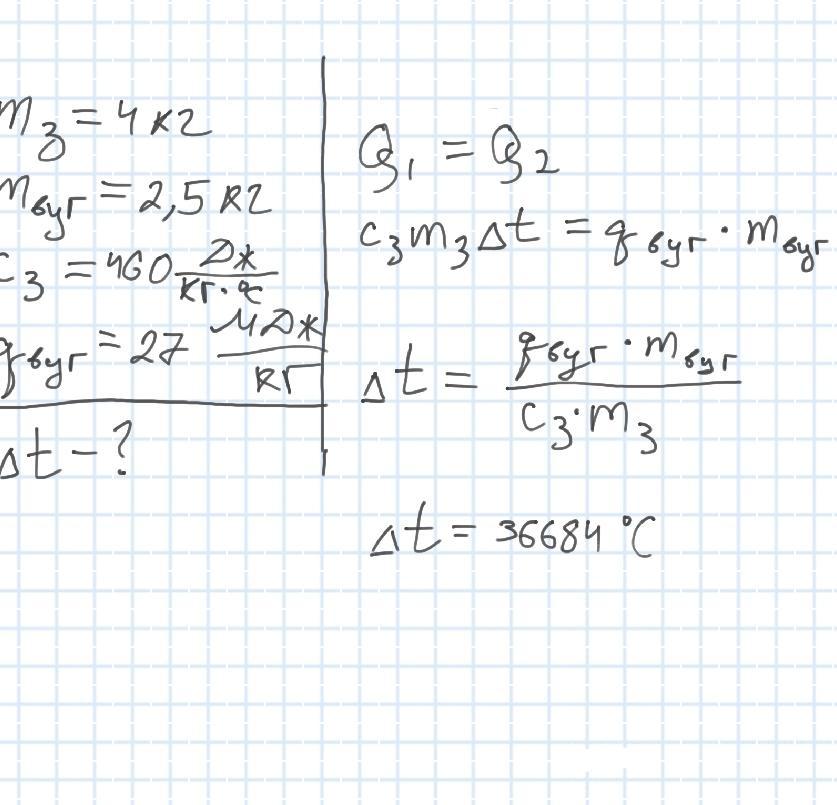 m₃ = 4 кг
mвуг = 2,5 кг
c₃ = 460 Дж/кг·°C
qвуг = 27 МДж/кг
Δt - ?
Q₁ = Q₂
c₃m₃Δt = qвуг · mвуг
Δt = qвуг · mвуг / c₃·m₃
Δt = 36684 °C